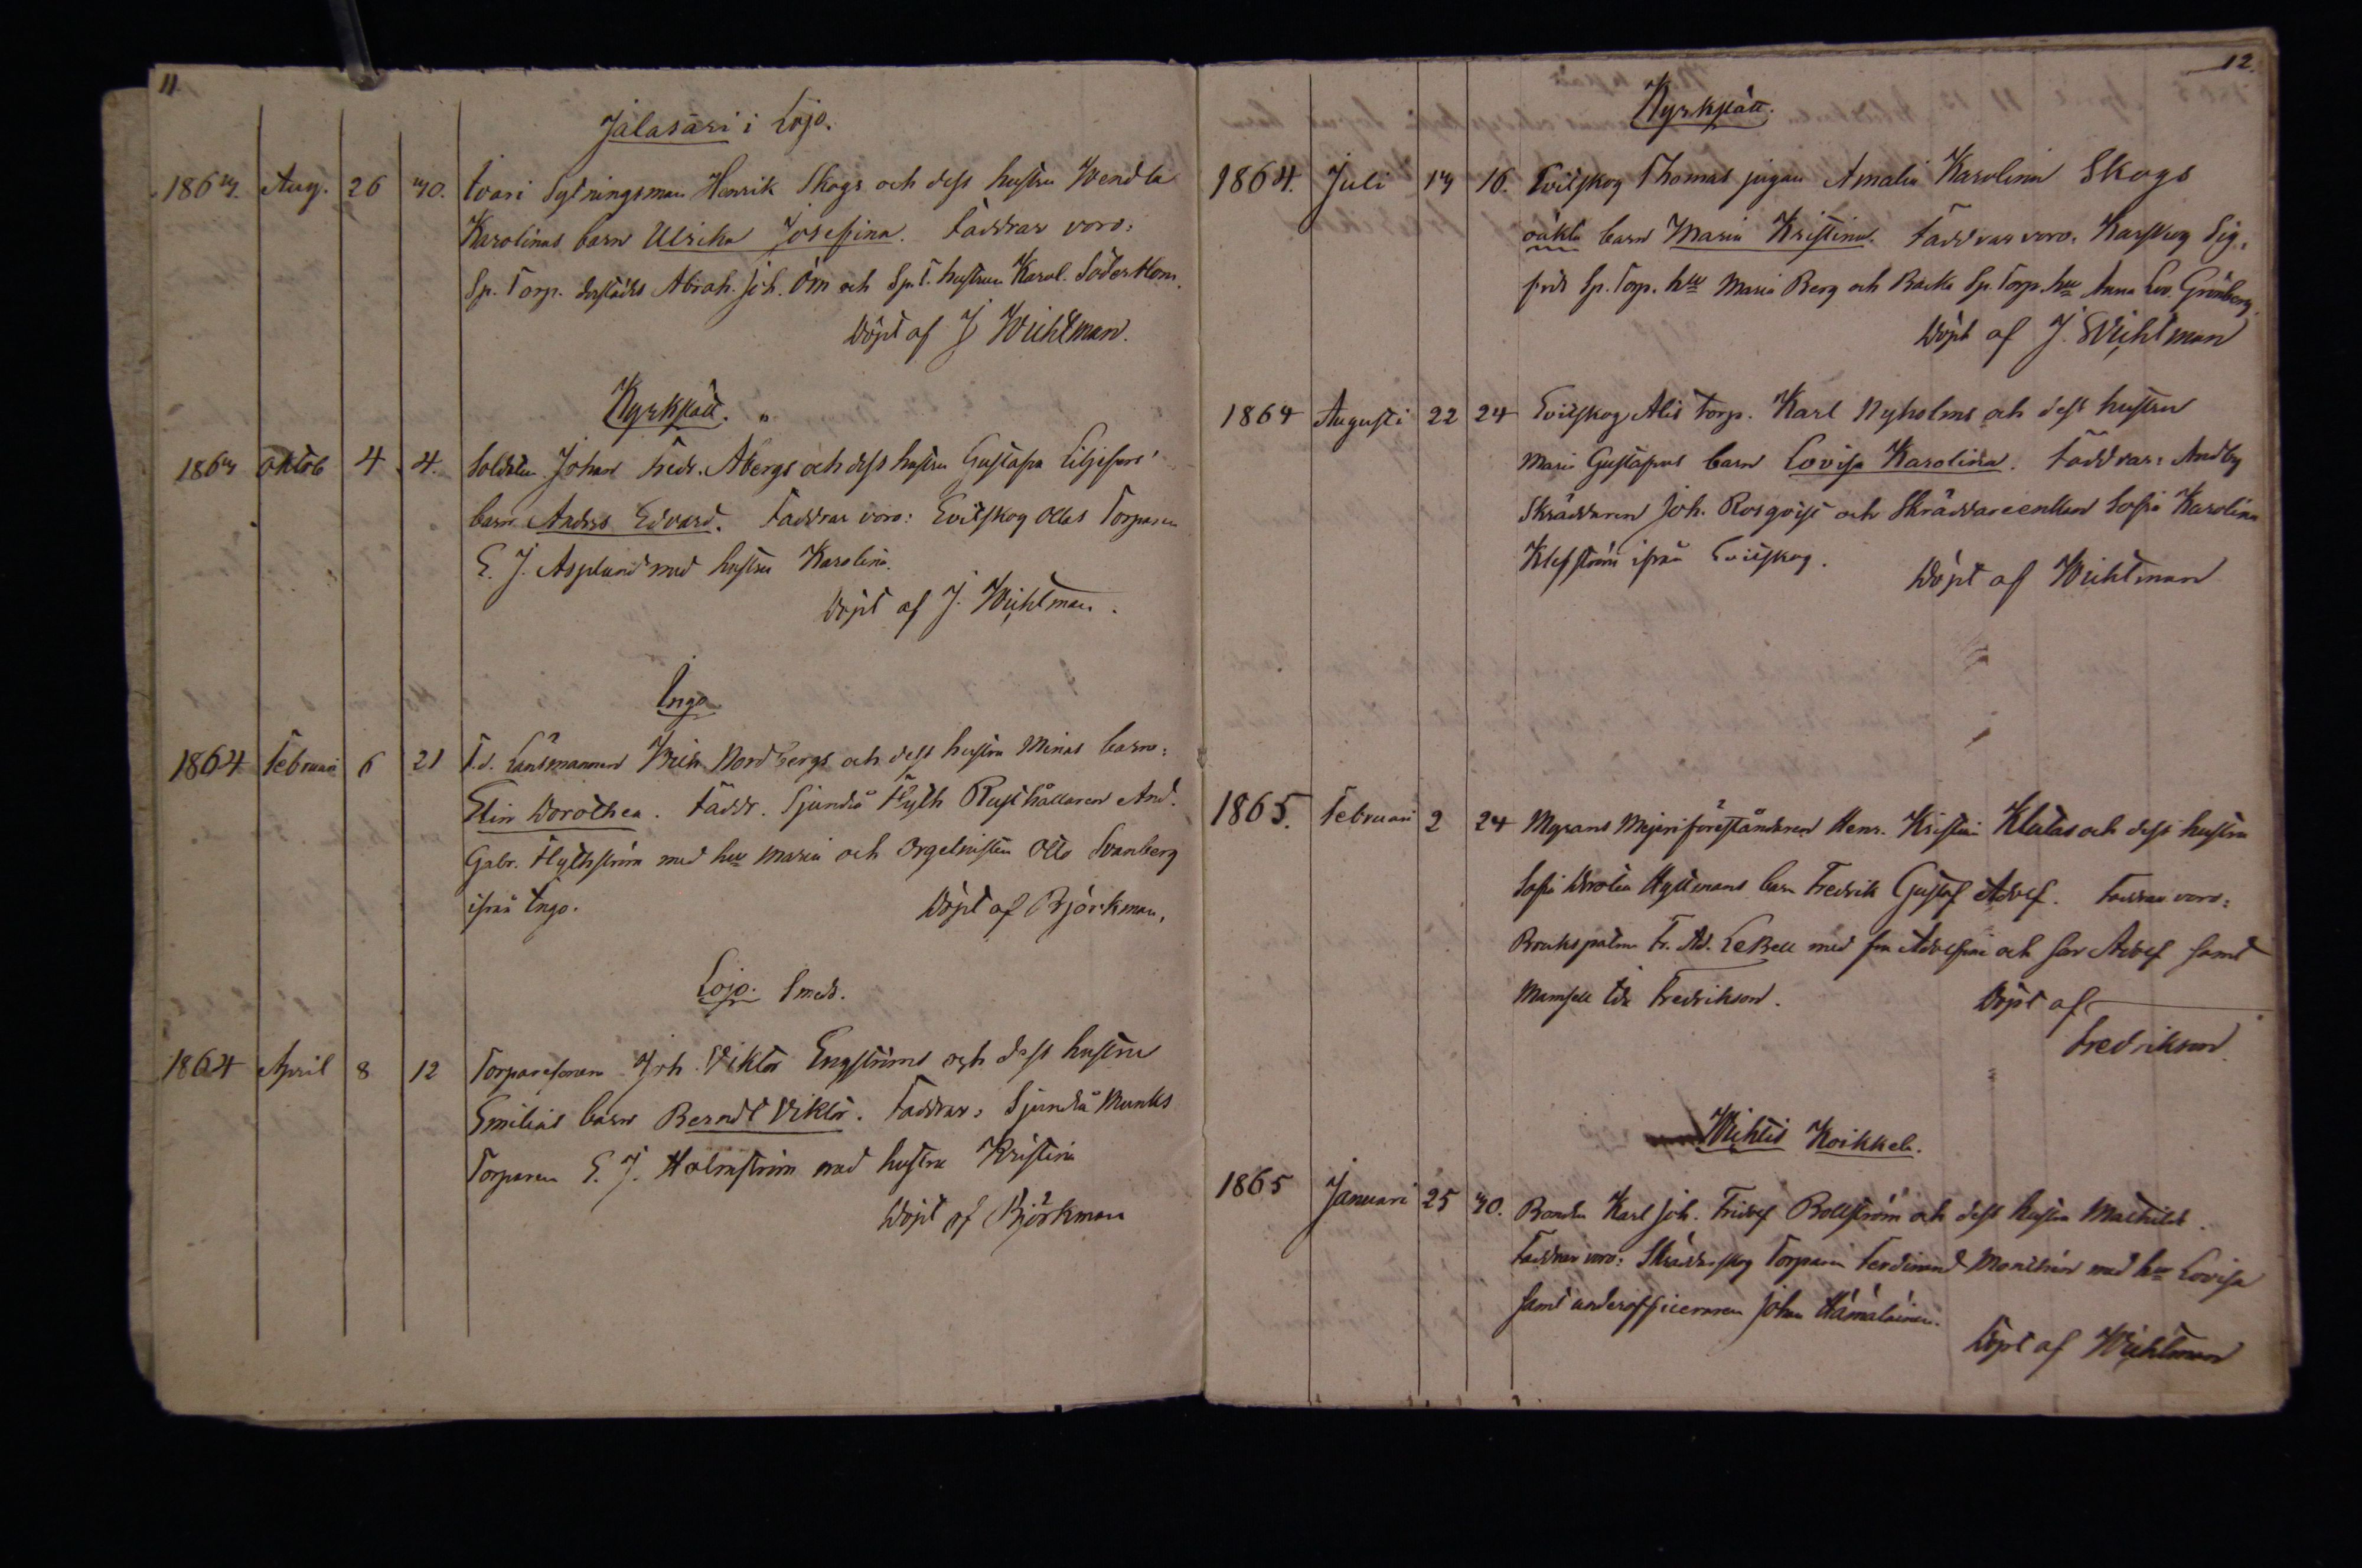 11.
Jalasäri i Lojo.
1863. Aug. 26 30. Ivari Sytningsman Henrik Skogs och dess hustru Wendla
Karolinas barn Ulrika Josefina. Faddrar voro:
Sp. Torp. derstädes Abrah. Joh. Öm och Sp. T. hustrun Karol. Söderblom.
Döpt af J Wichtman.
Kyrkslätt.
1863 Oktob 4 4. Soldaten Johan Fredr. Åbergs och dess hustru Gustafva Liljefors'
barn Anders Edvard. Faddrar voro: Evitskog Ollas Torparen
E. J. Asplund med hustru Karolina.
Döpt af J. Wichtman.
Ingo
1864 Februari 6 21 F.d. Länsmannen Erich Nordbergs och dess hustru Minas barn:
Elin Dorothea. Faddr. Sjundeå Flyth Rusthållaren And.
Gabr. Flythström med hu Maria och Orgelnisten Otto Svanberg
ifrån Ingo. Döpt af Björkman,
Lojo. Smeds.
1864 April 8 12 Torparesonen Joh. Viktor Engströms och dess hustru
Emilias barn Berndt Viktor. Faddrar: Sjundeå Munks
Torparen E. J. Holmström med hustru Kristina
Döpt af Björkman
12.
Kyrkslätt.
1864. Juli 13 16. Evitskog Thomas pigan Amalia Karolina Skogs
oäkta barn Maria Kristina. Faddrar voro: Karskog Sig-
frids Sp. Torp. hu Maria Berg och Backa Sp. Torp. hu Anna Lov. Grönberg.
Döpt af J. Wichtman
1864 Augusti 22 24 Evitskog Alis Torp. Karl Nyholms och dess hustru
Maria Gustafvas barn Lovisa Karolina. Faddrar: Andby
Skräddaren Joh. Rosqvist och Skräddareenkan Sofia Karolina
Klefström ifrån Evitskog. Döpt af Wichtman
1865. Februari 2 24 Myrans Mejeriföreståndaren Henr. Kristian Klutas och dess hustru
Sofia Hyttinens barn Fredrik Gustaf Adolf. Faddrar voro:
Brukspatron Fr. Ad. LeBell med fru Adolfine och son Adolf samt
Mamsell Ida Fredrikson. Döpt af
Fredrikson.
Wichtis Koikkala.
1865 Januari 25 30. Bonden Karl Joh. Fridolf Bollström och dess hustru Mathilda.
Faddrar voro: Skräddarskog Torparen Ferdinand med hu Lovisa
samt underofficeraren Johan Hämäläinen.
Döpt af Wichtman